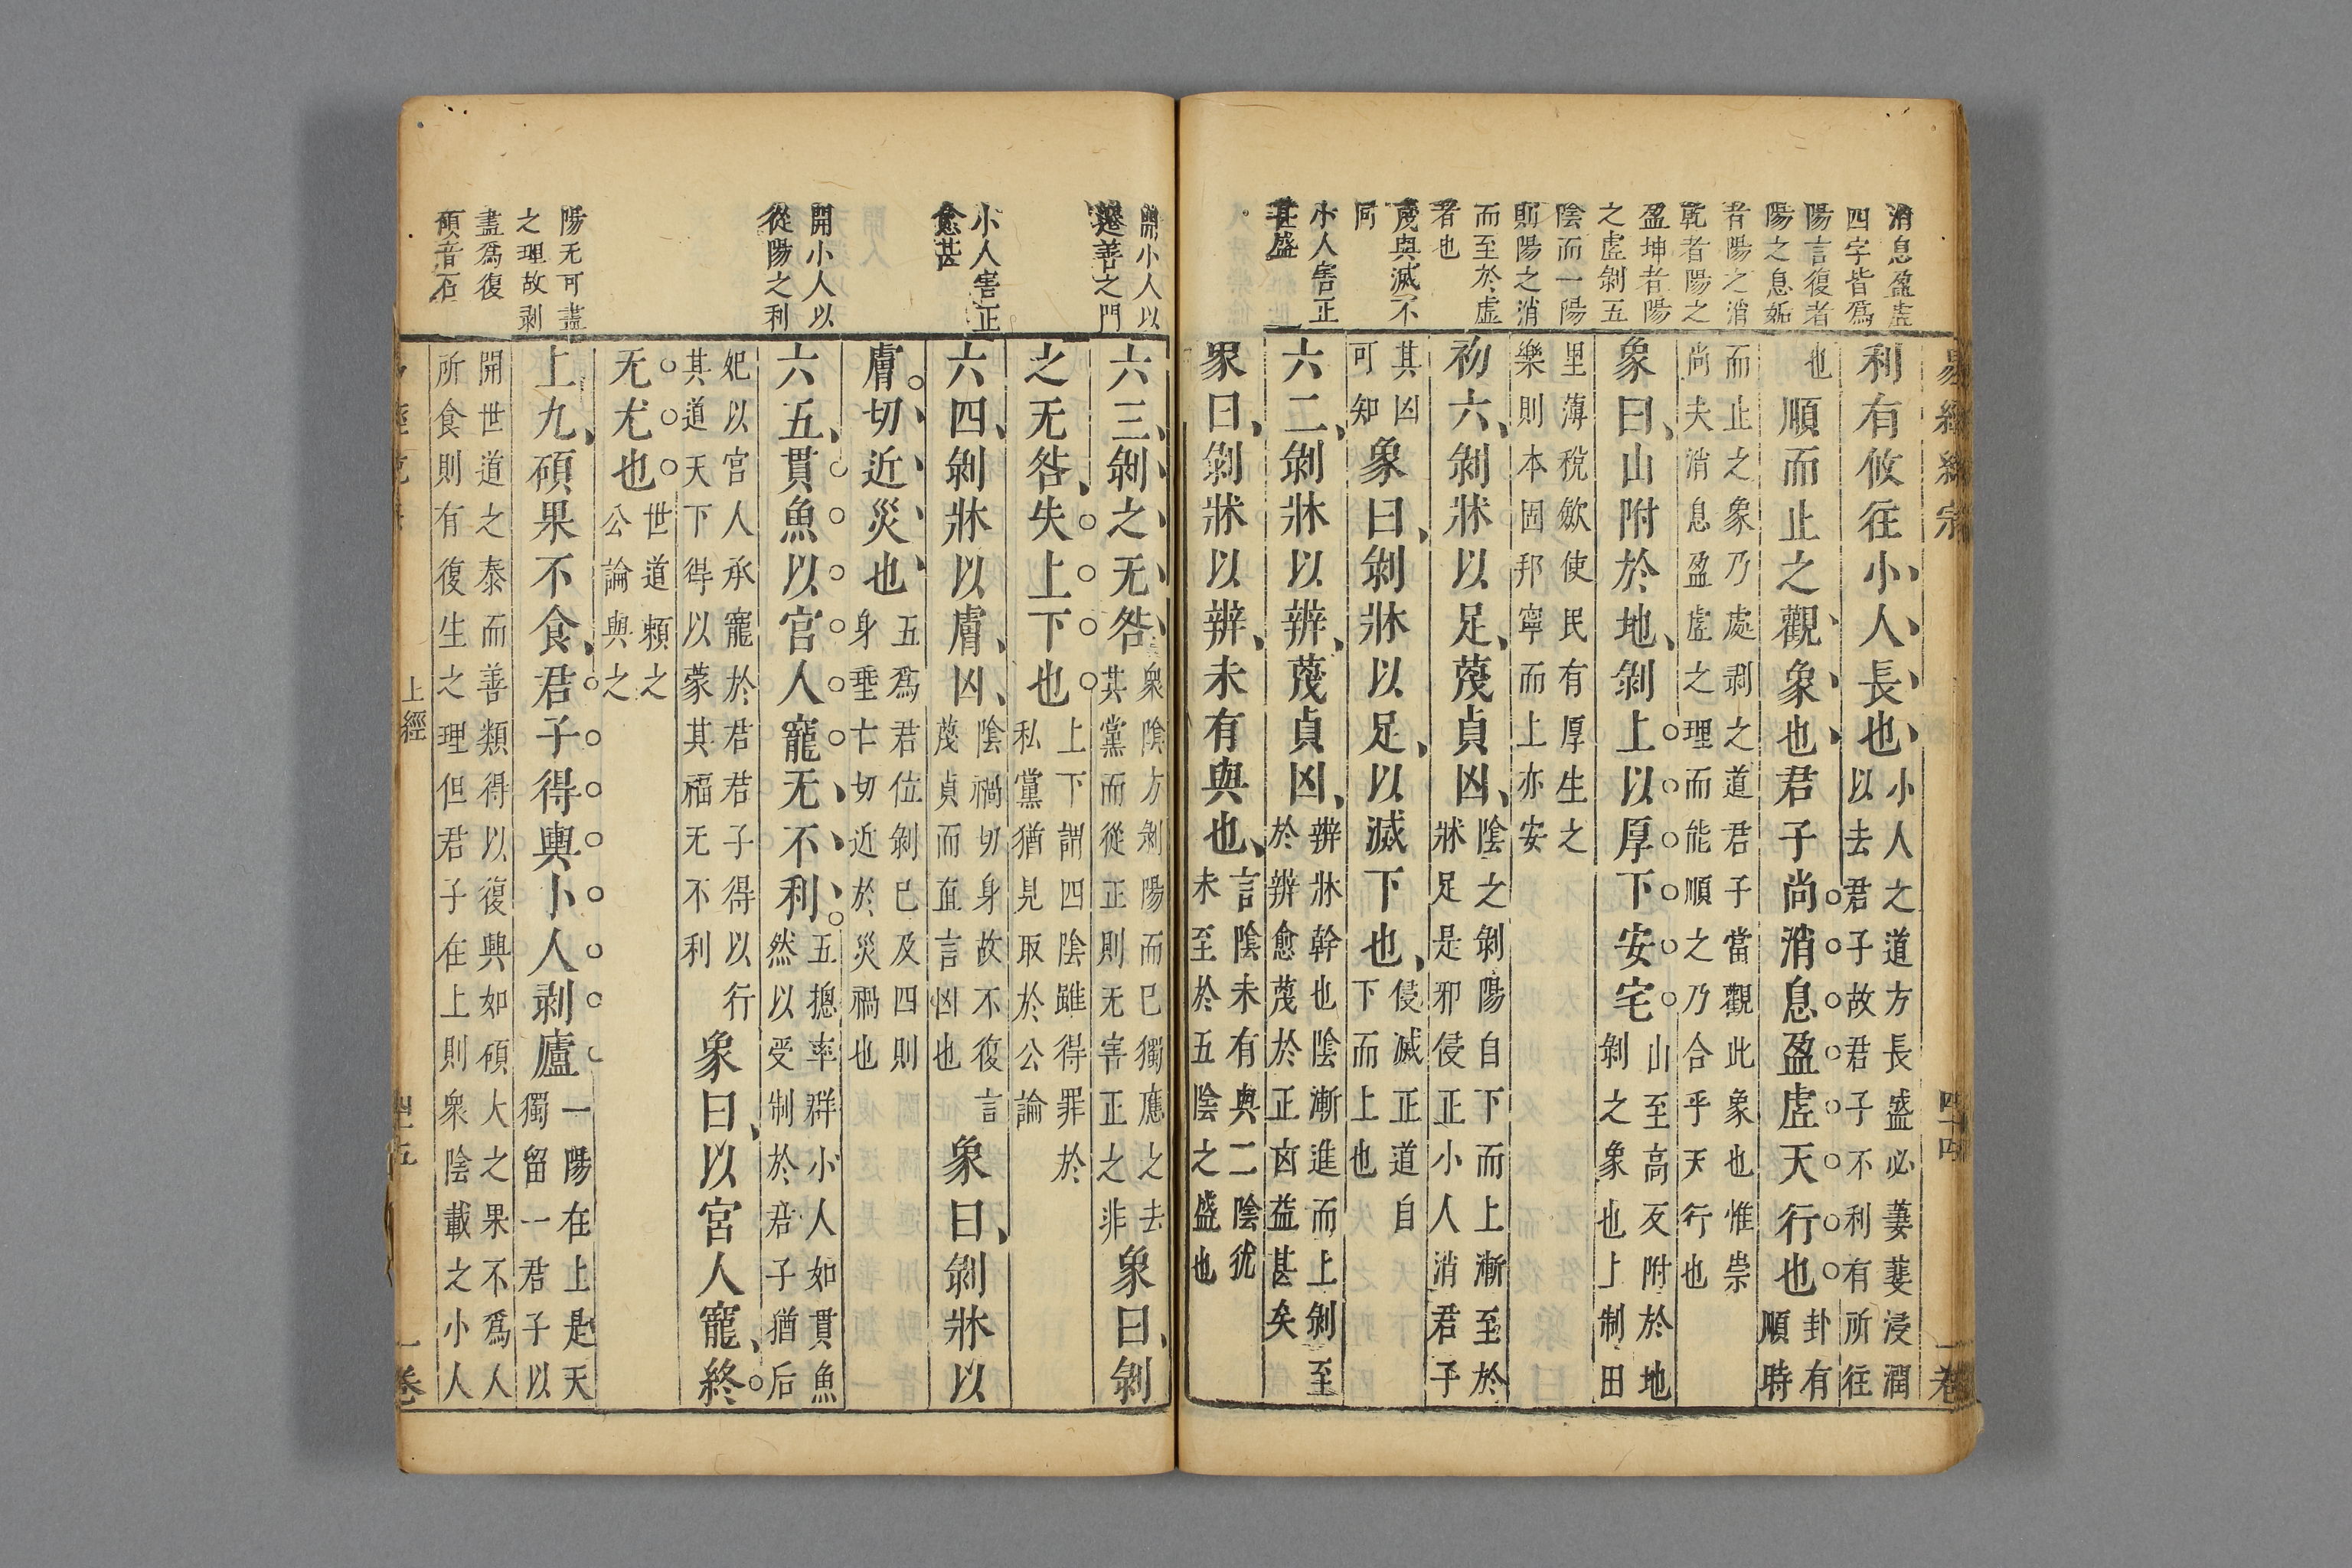 消息盈虛
四字皆爲
陽言復者
陽之息姤
者陽之消
乾者陽之
盈坤者陽
之虛剝五
陰而一陽
則陽之消
而至於虛
者也
蔑與滅不
同
小人害正
甚盛
易經
利有攸往小人長也
小人之道方長盛必萋萋浸潤
以去君子故君子不利有所往
也
順而止之觀象也君子尚消息盈虛天行也
卦有
順時
而止之象乃處剥之道君子當觀此象也惟崇
尚夫消息盈虛之理而能順之乃合乎天行也
象曰山附於地剝上以厚下安宅
山至高反附於地
剝之象也上制田
里薄稅斂使民有厚生之
樂則本固邦寧而上亦安
初六剝牀以足蔑貞凶
陰之剝陽自下而上漸至於
牀足是邪侵正小人消君子
其凶
可知
象曰剝牀以足以滅下也
侵滅正道自
下而上也
六二剝牀以辨蔑貞凶
辨牀幹也陰漸進而上剝至
於辨愈蔑於正凶益甚矣
象曰剝牀以辨未有與也
言陰未有與二陰猶
未至於五陰之盛也
四十四
一卷
開小人以
遷善之門
小人害正
愈甚
開小人以
從陽之利
陽无可盡
之理故剥
盡爲復
碩音石
六三剝之无咎
衆陰方剝陽而已獨應之去
其黨而從正則无害正之非
象曰剝
之无咎失上下也
上下謂四陰雖得罪於
私黨猶見取於公論
六四剝牀以膚凶
陰禍切身故不復言
蔑貞而直言凶也
象曰剝牀以
膚切近災也
五爲君位剝已及四則
身垂亡切近於災禍也
六五貫魚以宮人寵无不利
五摠率群小人如貫魚
然以受制於君子猶后
妃以宮人承寵於君君子得以行
其道天下得以蒙其福无不利
象曰以宮人寵終
无尤也
世道賴之
公論與之
上九碩果不食君子得輿小人剥廬
一陽在上是天
獨留一君子以
開世道之泰而善類得以復興如碩大之果不爲人
所食則有復生之理但君子在上則衆陰載之小人
上經
一卷